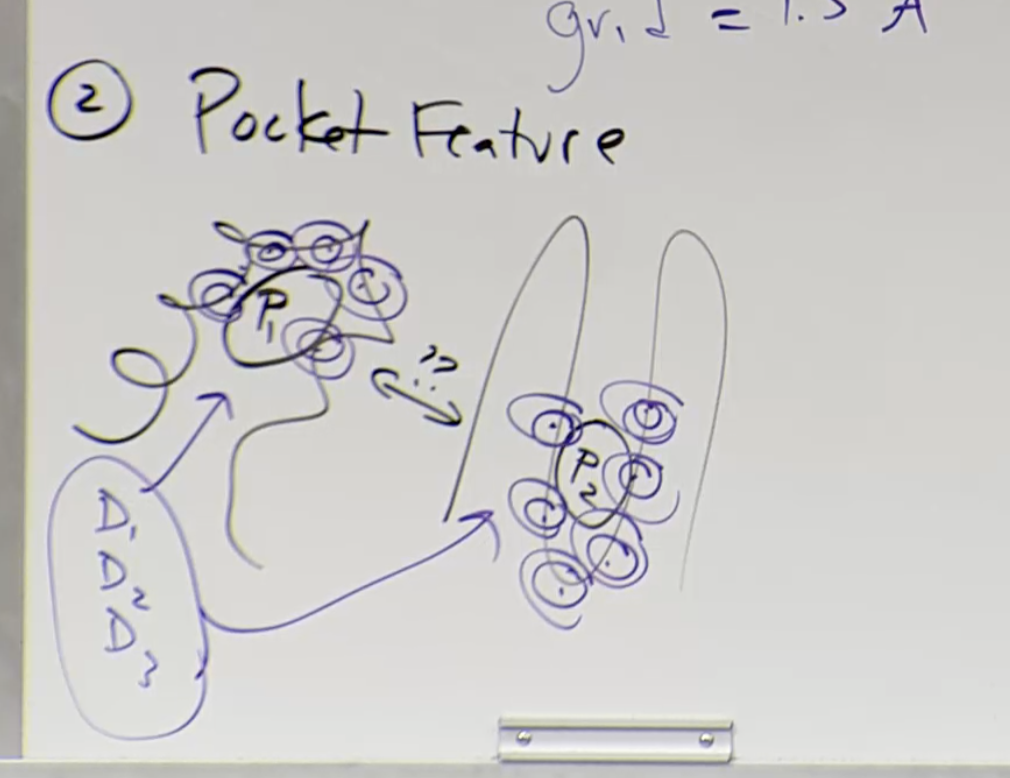 grid = 1.5 A
2 Pocket Feature
P1
??
P2
D1
D2
D3